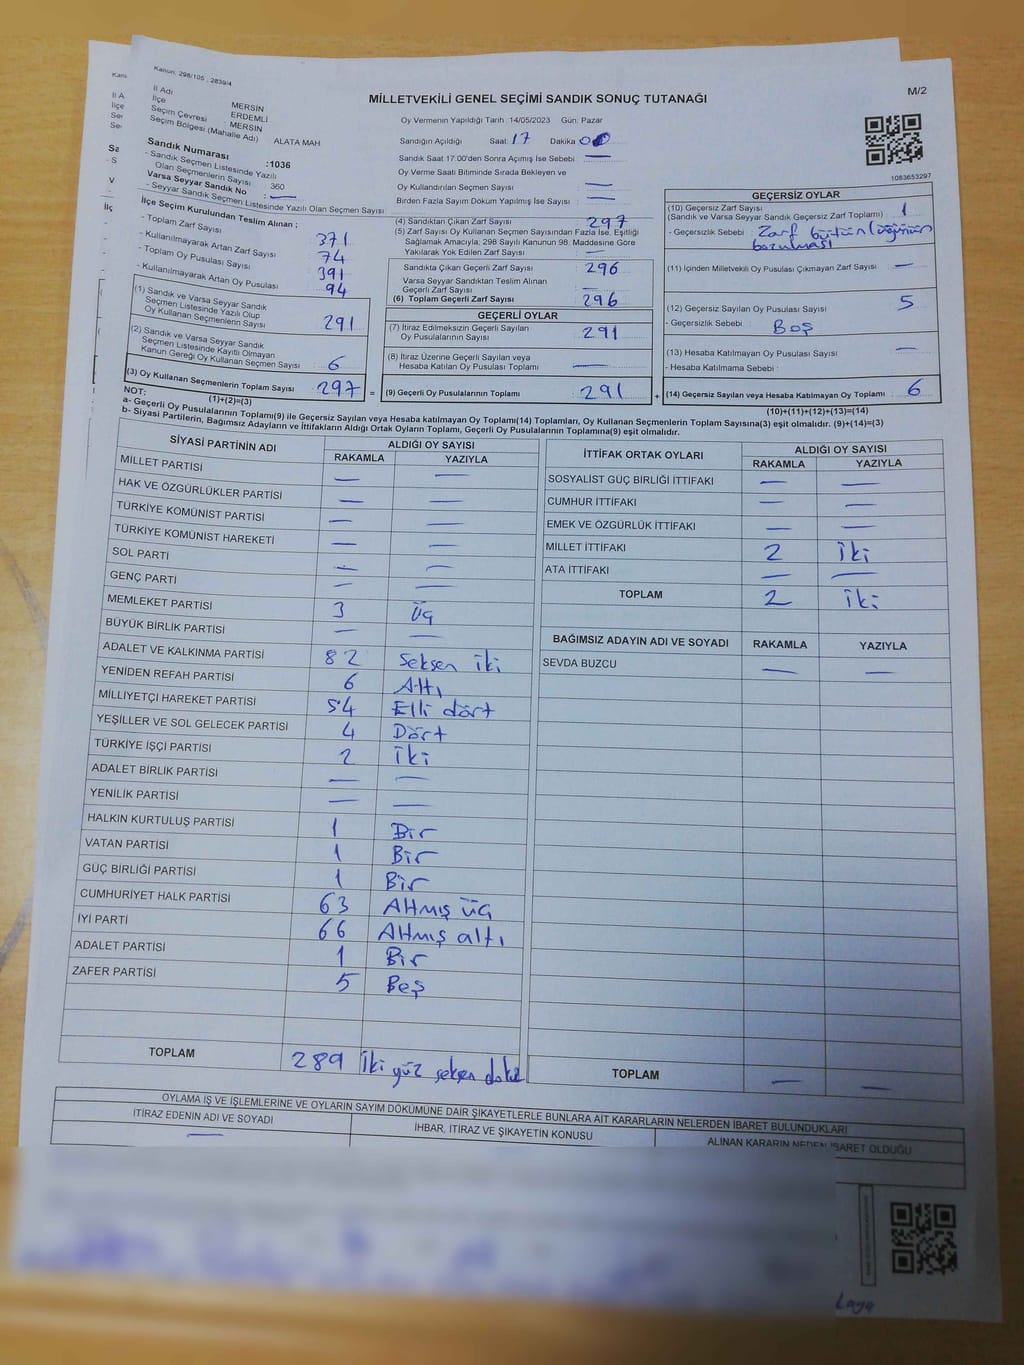 Kanun: 298/105 , 2839/4
M/2
MİLLETVEKİLİ GENEL SEÇİMİ SANDIK SONUÇ TUTANAĞI
İl Adı : MERSİN
İlçe : ERDEMLİ
Seçim Çevresi : MERSİN
Seçim Bölgesi (Mahalle Adı) ALATA MAH
Sandık Numarası :1036
- Sandık Seçmen Listesinde Yazılı
Olan Seçmenlerin Sayısı : 360
Varsa Seyyar Sandık No : —
- Seyyar Sandık Seçmen Listesinde Yazılı Olan Seçmen Sayısı
İlçe Seçim Kurulundan Teslim Alınan ;
- Toplam Zarf Sayısı 371
- Kullanılmayarak Artan Zarf Sayısı 74
- Toplam Oy Pusulası Sayısı 391
- Kullanılmayarak Artan Oy Pusulası 94
(1) Sandık ve Varsa Seyyar Sandık
Seçmen Listesinde Yazılı Olup
Oy Kullanan Seçmenlerin Sayısı 291
(2) Sandık ve Varsa Seyyar Sandık
Seçmen Listesinde Kayıtlı Olmayan
Kanun Gereği Oy Kullanan Seçmen Sayısı 6
(3) Oy Kullanan Seçmenlerin Toplam Sayısı 297 =
(1)+(2)=(3)
Oy Vermenin Yapıldığı Tarih :14/05/2023 Gün: Pazar
Sandığın Açıldığı Saat: 17 Dakika 00
Sandık Saat 17.00'den Sonra Açımış İse Sebebi : —
Oy Verme Saati Bitiminde Sırada Bekleyen ve
Oy Kullandırılan Seçmen Sayısı : —
Birden Fazla Sayım Döküm Yapılmış İse Sayısı : —
(4) Sandıktan Çıkan Zarf Sayısı : 297
(5) Zarf Sayısı Oy Kullanan Seçmen Sayısından Fazla İse, Eşitliği
Sağlamak Amacıyla; 298 Sayılı Kanunun 98. Maddesine Göre
Yakılarak Yok Edilen Zarf Sayısı : —
Sandıkta Çıkan Geçerli Zarf Sayısı : 296
Varsa Seyyar Sandıktan Teslim Alınan
Geçerli Zarf Sayısı : —
(6) Toplam Geçerli Zarf Sayısı : 296
GEÇERLİ OYLAR
(7) İtiraz Edilmeksizin Geçerli Sayılan
Oy Pusulalarının Sayısı : 291
(8) İtiraz Üzerine Geçerli Sayılan veya
Hesaba Katılan Oy Pusulası Toplamı : —
(9) Geçerli Oy Pusulalarının Toplamı : 291 +
1083653297
GEÇERSİZ OYLAR
(10) Geçersiz Zarf Sayısı
(Sandık ve Varsa Seyyar Sandık Geçersiz Zarf Toplamı) : 1
- Geçersizlik Sebebi : Zarf bütünlüğünün
bozulması
(11) İçinden Milletvekili Oy Pusulası Çıkmayan Zarf Sayısı : —
(12) Geçersiz Sayılan Oy Pusulası Sayısı : 5
- Geçersizlik Sebebi : Boş
(13) Hesaba Katılmayan Oy Pusulası Sayısı : —
- Hesaba Katılmama Sebebi :
(14) Geçersiz Sayılan veya Hesaba Katılmayan Oy Toplamı : 6
(10)+(11)+(12)+(13)=(14)
NOT:
a- Geçerli Oy Pusulalarının Toplamı(9) ile Geçersiz Sayılan veya Hesaba katılmayan Oy Toplamı(14) Toplamları, Oy Kullanan Seçmenlerin Toplam Sayısına(3) eşit olmalıdır. (9)+(14)=(3)
b- Siyasi Partilerin, Bağımsız Adayların ve İttifakların Aldığı Ortak Oyların Toplamı, Geçerli Oy Pusulalarının Toplamına(9) eşit olmalıdır.
SİYASİ PARTİNİN ADI ALDIĞI OY SAYISI
RAKAMLA YAZIYLA
MİLLET PARTİSİ — —
HAK VE ÖZGÜRLÜKLER PARTİSİ — —
TÜRKİYE KOMÜNİST PARTİSİ — —
TÜRKİYE KOMÜNİST HAREKETİ — —
SOL PARTİ — —
GENÇ PARTİ — —
MEMLEKET PARTİSİ 3 üç
BÜYÜK BİRLİK PARTİSİ — —
ADALET VE KALKINMA PARTİSİ 82 seksen iki
YENİDEN REFAH PARTİSİ 6 Altı
MİLLİYETÇİ HAREKET PARTİSİ 54 Elli dört
YEŞİLLER VE SOL GELECEK PARTİSİ 4 Dört
TÜRKİYE İŞÇİ PARTİSİ 2 iki
ADALET BİRLİK PARTİSİ — —
YENİLİK PARTİSİ — —
HALKIN KURTULUŞ PARTİSİ 1 Bir
VATAN PARTİSİ 1 Bir
GÜÇ BİRLİĞİ PARTİSİ 1 Bir
CUMHURİYET HALK PARTİSİ 63 Altmış üç
İYİ PARTİ 66 Altmış altı
ADALET PARTİSİ 1 Bir
ZAFER PARTİSİ 5 Beş
TOPLAM 289 İki yüz seksen dokuz
İTTİFAK ORTAK OYLARI ALDIĞI OY SAYISI
RAKAMLA YAZIYLA
SOSYALİST GÜÇ BİRLİĞİ İTTİFAKI — —
CUMHUR İTTİFAKI — —
EMEK VE ÖZGÜRLÜK İTTİFAKI — —
MİLLET İTTİFAKI 2 iki
ATA İTTİFAKI — —
TOPLAM 2 iki
BAĞIMSIZ ADAYIN ADI VE SOYADI RAKAMLA YAZIYLA
SEVDA BUZCU — —
TOPLAM — —
OYLAMA İŞ VE İŞLEMLERİNE VE OYLARIN SAYIM DÖKÜMÜNE DAİR ŞİKAYETLERLE BUNLARA AİT KARARLARIN NELERDEN İBARET BULUNDUKLARI
İTİRAZ EDENİN ADI VE SOYADI İHBAR, İTİRAZ VE ŞİKAYETİN KONUSU ALINAN KARARIN NEDEN İBARET OLDUĞU
—